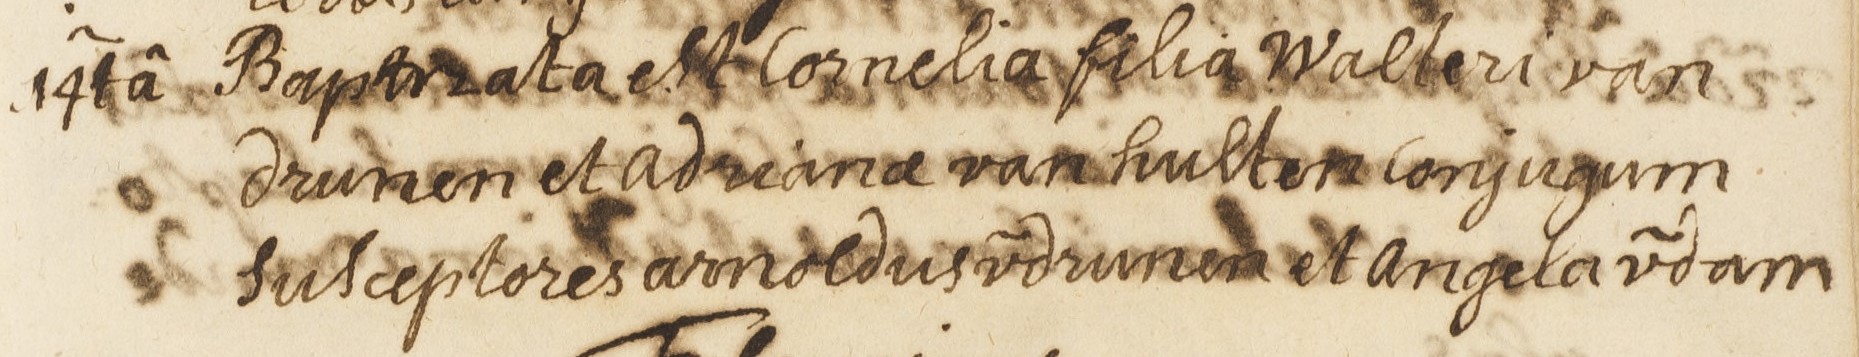 14tâ Baptizata est Cornelia filia Walteri van
drunen et adrianæ van hulten conjugum
susceptores arnoldus v̄drunen et angela v̄dam